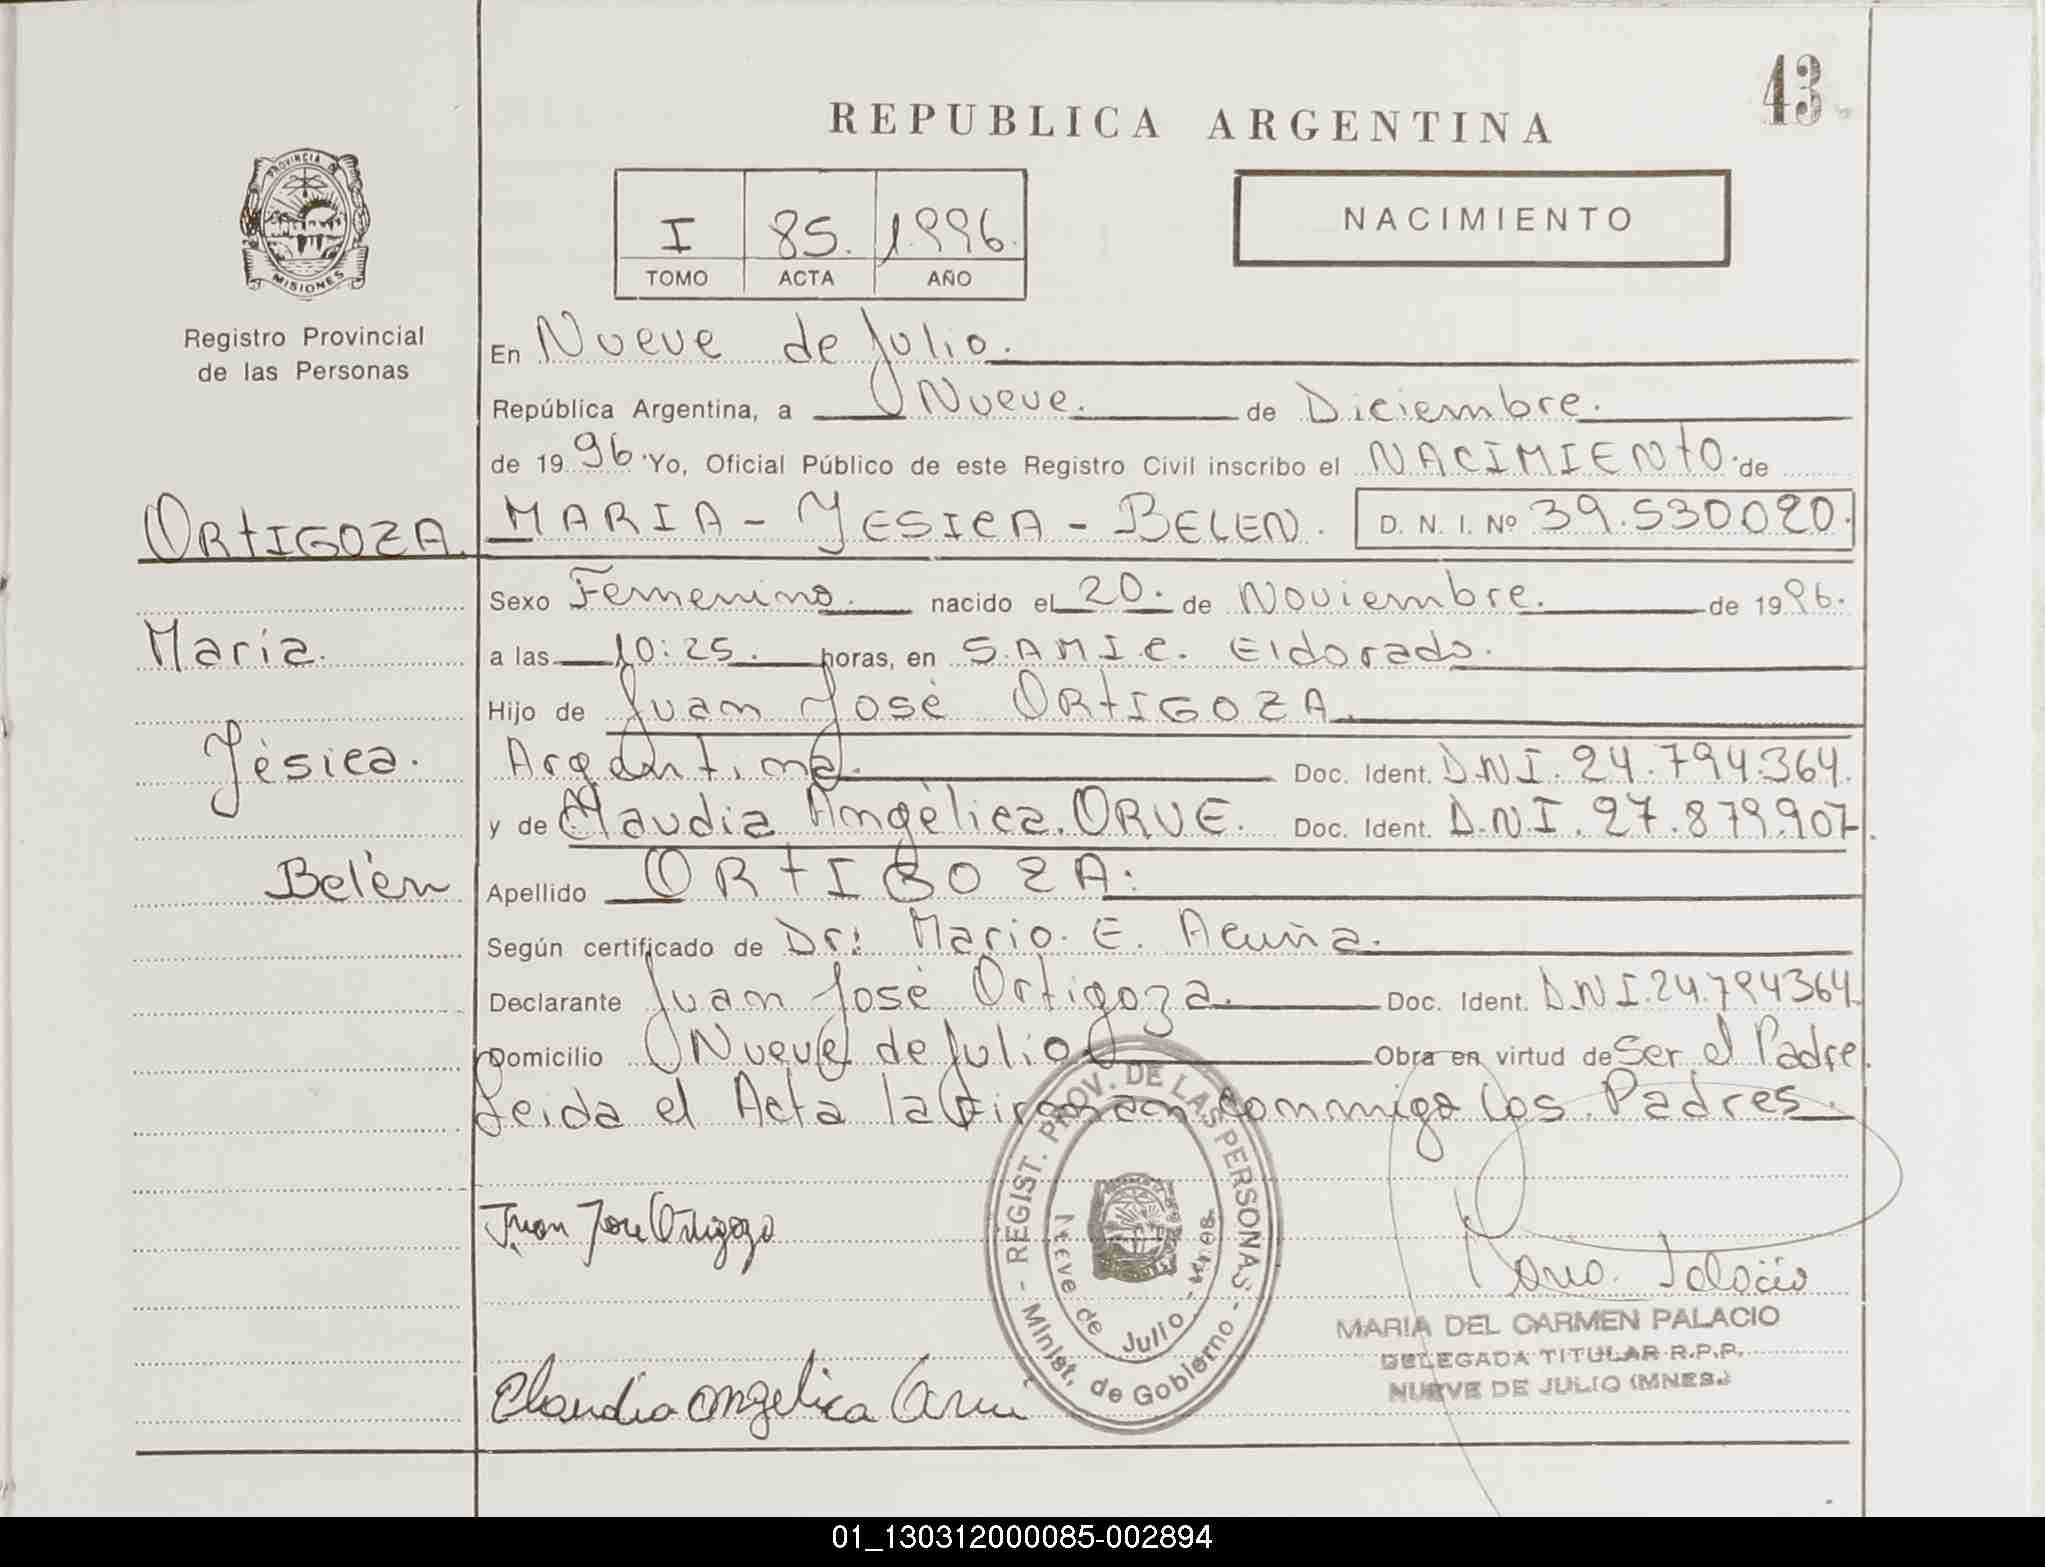 43
REPUBLICA ARGENTINA
PROVINCIA DE
MISIONES
Registro Provincial
de las Personas
I 85. 1996.
TOMO ACTA AÑO
NACIMIENTO
En Nueve de Julio.
República Argentina, a Nueve. de Diciembre.
de 1996. Yo, Oficial Público de este Registro Civil inscribo el NACIMIENTO. de
ORTIGOZA. MARIA - YESICA - BELEN. D. N. I. Nº 39.530.020.
Sexo Femenino. nacido el 20. de Noviembre. de 1996.
María. a las 10:25. horas, en S.AMI.C. Eldorado.
Hijo de Juan José ORTIGOZA.
Yésica. Argentina. Doc. Ident. D.N.I. 24.794.364.
y de Claudia Angélica. ORUE. Doc. Ident. D.N.I. 27.879.907.
Belén Apellido ORTIGOZA.
Según certificado de Dr: Mario. E. Acuña.
Declarante Juan José Ortigoza. Doc. Ident. D.N.I. 24.794364.
Domicilio Nueve de Julio Obra en virtud de Ser el Padre.
Leida el Acta la firman conmigo los Padres.
Juan Jose Ortigoza
REGIST. PROV. DE LAS PERSONAS - Minist. de Gobierno -
Nueve de Julio - Mnes.
Maria Palacio
MARIA DEL CARMEN PALACIO
DELEGADA TITULAR R.P.P.
NUEVE DE JULIO (MNES.)
Claudia Angelica Orue
01_130312000085-002894